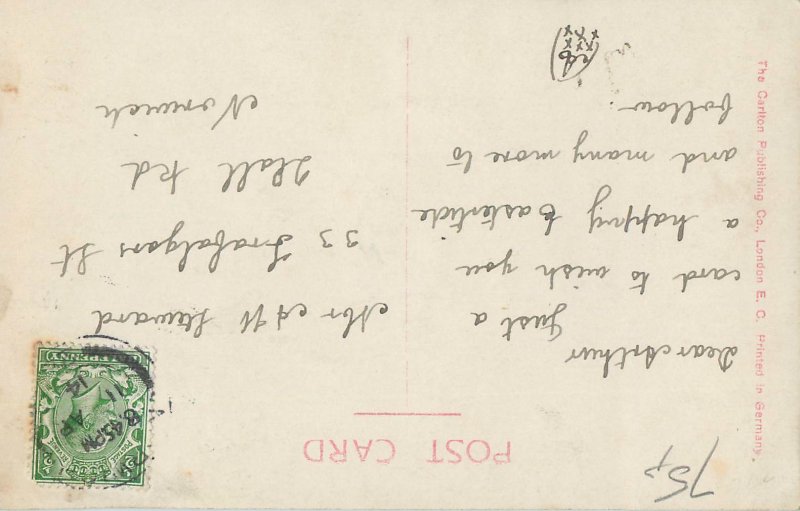 POST CARD
The Carlton Publishing Co., London E. C. Printed in Germany.
Dear Arthur
Just a
card to wish you
a happy Eastertide
and many more to
follow.
xxx
xxx
Mr A W
33 Trafalgar St
Hall Rd
Norwich
HALFPENNY
8.45PM
AP
11
14
75p